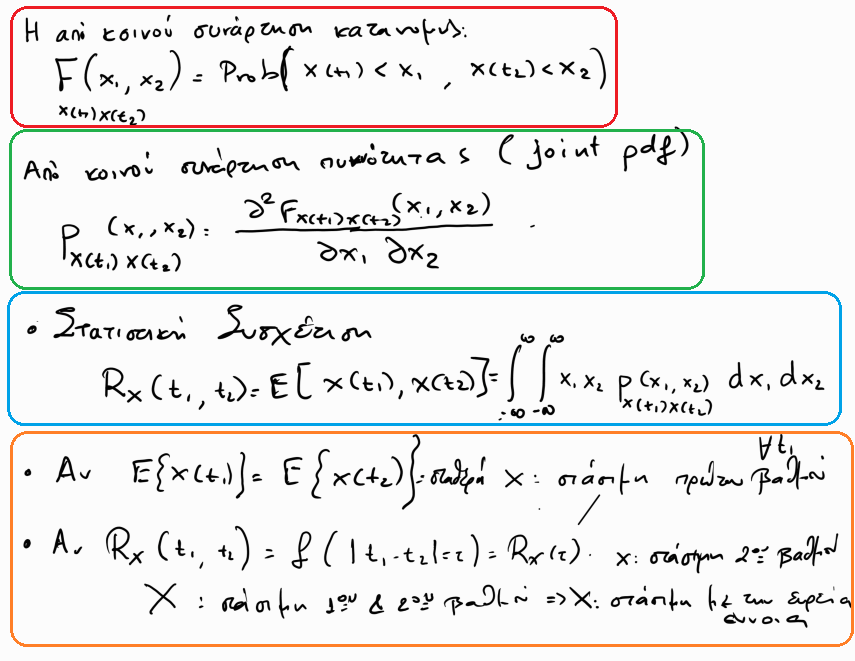 Η από κοινού συνάρτηση κατανομής:
F_{x(t₁)x(t₂)}(x₁, x₂) = Prob( x(t₁) < x₁ , x(t₂) < x₂ )
Από κοινού συνάρτηση πυκνότητας ( joint pdf )
p_{x(t₁)x(t₂)}(x₁, x₂) = ∂²F_{x(t₁)x(t₂)}(x₁, x₂) / ∂x₁ ∂x₂ .
• Στατιστική Συσχέτιση
R_x(t₁, t₂) = E[ x(t₁), x(t₂)] = ∫_{-∞}^{∞} ∫_{-∞}^{∞} x₁ x₂ p_{x(t₁)x(t₂)}(x₁, x₂) dx₁ dx₂
∀t₁
• Αν E{x(t₁)} = E{x(t₂)} = σταθερά x: στάσιμη πρώτου βαθμού
• Αν R_x(t₁, t₂) = f(|t₁-t₂|=τ) = R_x(τ). x: στάσιμη 2ου βαθμού
X : στάσιμη 1ου & 2ου βαθμού => X: στάσιμη με την ευρεία
έννοια